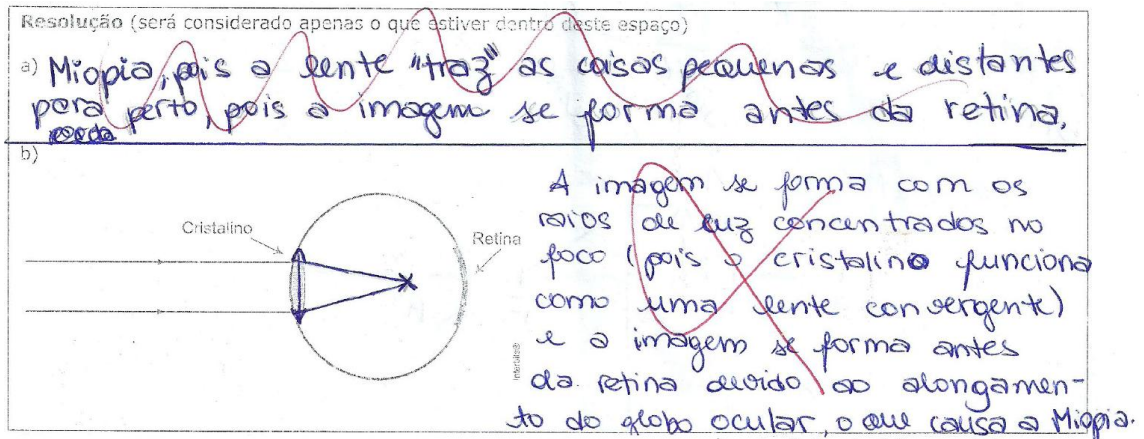 Resolução (será considerado apenas o que estiver dentro deste espaço)
a) Miopia, pois a lente "traz" as coisas pequenas e distantes
para perto, pois a imagem se forma antes da retina.
b)
A imagem se forma com os
raios de luz concentrados no
foco (pois o cristalino funciona
como uma lente convergente)
e a imagem se forma antes
da retina devido ao alongamen-
to do globo ocular, o que causa a Miopia.
Cristalino
Retina